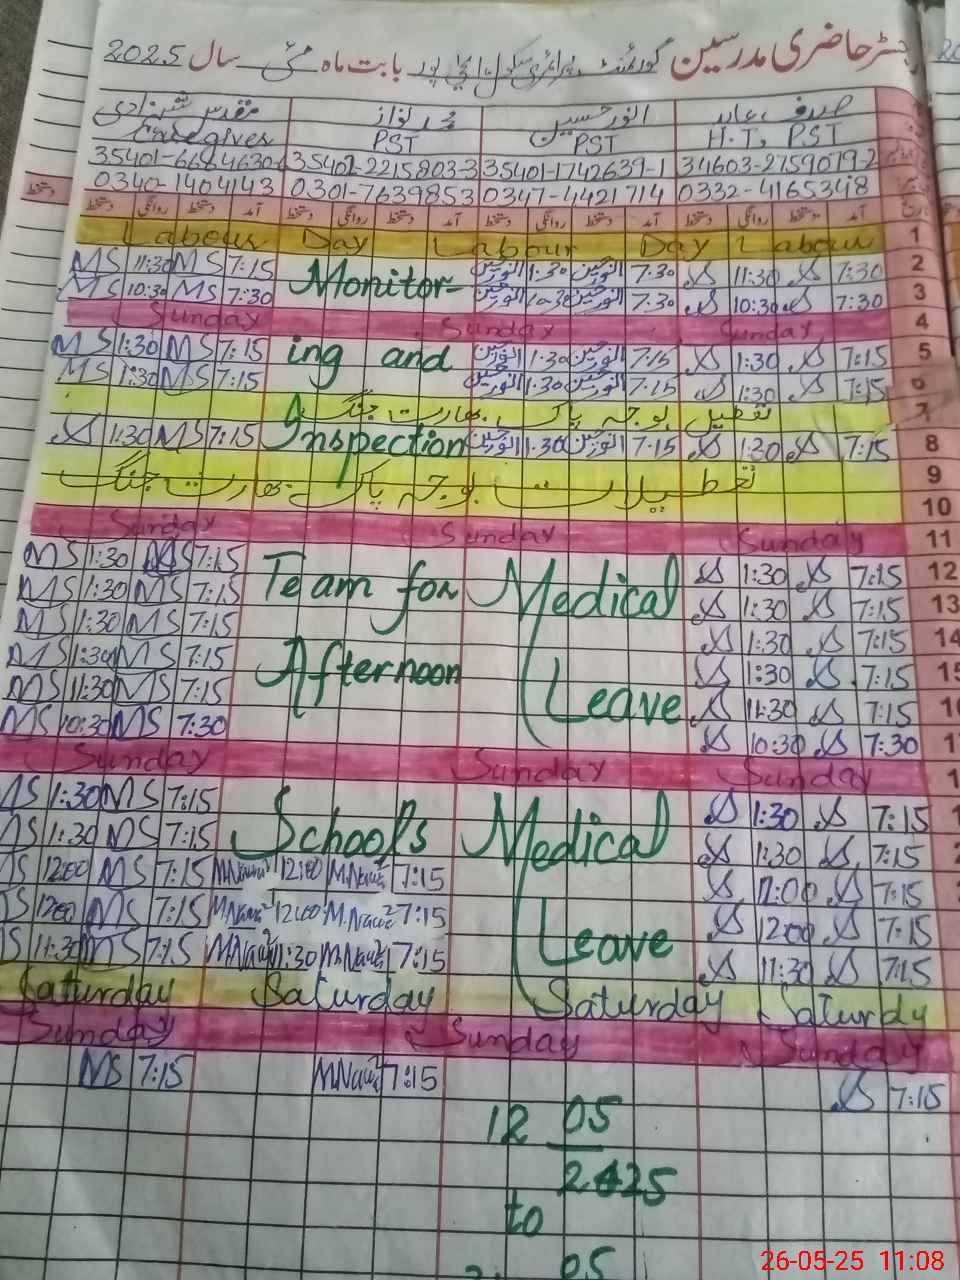 رجسٹر حاضری مدرسین گورنمنٹ پرائمری سکول بابت ماہ مئی سال 2025
صدف عابد انور حسین محمد نواز مقدس شہزادی
H.T, PST PST PST Caregiver
34603-2759079-2 35401-1742639-1 35402-2215803-3 35401-6684630-6
0332-4165348 0347-4421714 0301-7639853 0340-1404143
آمد دستخط روانگی دستخط آمد دستخط روانگی دستخط آمد دستخط روانگی دستخط آمد دستخط روانگی دستخط
Labour Day Labour Day Labour 1
MS 11:30 MS 7:15 Monitor- انور حسین 1:30 انور حسین 7:30 11:30 7:30 2
MS 10:30 MS 7:30 انور حسین 10:30 انور حسین 7:30 10:30 7:30 3
Sunday Sunday Sunday 4
MS 1:30 MS 7:15 ing and انور حسین 1:30 انور حسین 7:15 1:30 7:15 5
MS 1:30 MS 7:15 انور حسین 1:30 انور حسین 7:15 1:30 7:15 6
تعطیل بوجہ پاک بھارت جنگ 7
1:30 MS 7:15 Inspection انور حسین 1:30 انور حسین 7:15 1:30 7:15 8
تعطیلات بوجہ پاک بھارت جنگ 9
10
Sunday Sunday Sunday 11
MS 1:30 MS 7:15 Team for Medical 1:30 7:15 12
MS 1:30 MS 7:15 1:30 7:15 13
MS 1:30 MS 7:15 1:30 7:15 14
MS 1:30 MS 7:15 Afternoon 1:30 7:15 15
MS 11:30 MS 7:15 Leave 11:30 7:15
MS 10:30 MS 7:30 10:30 7:30
Sunday Sunday Sunday
MS 1:30 MS 7:15 Schools Medical 1:30 7:15
MS 1:30 MS 7:15 1:30 7:15
MS 12:00 MS 7:15 M.Nawaz 12:00 M.Nawaz 7:15 12:00 7:15
MS 12:00 MS 7:15 M.Nawaz 12:00 M.Nawaz 7:15 Leave 12:00 7:15
MS 11:30 MS 7:15 M.Nawaz 11:30 M.Nawaz 7:15 11:30 7:15
Saturday Saturday Saturday Saturdy
Sunday Sunday Sunday
MS 7:15 M.Nawaz 7:15 7:15
12 05
2425
to
05
26-05-25 11:08